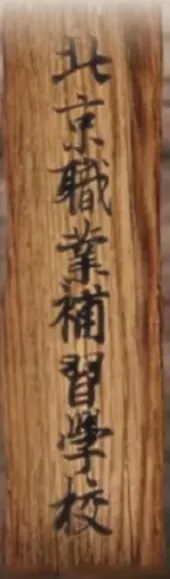 北京職業補習學校